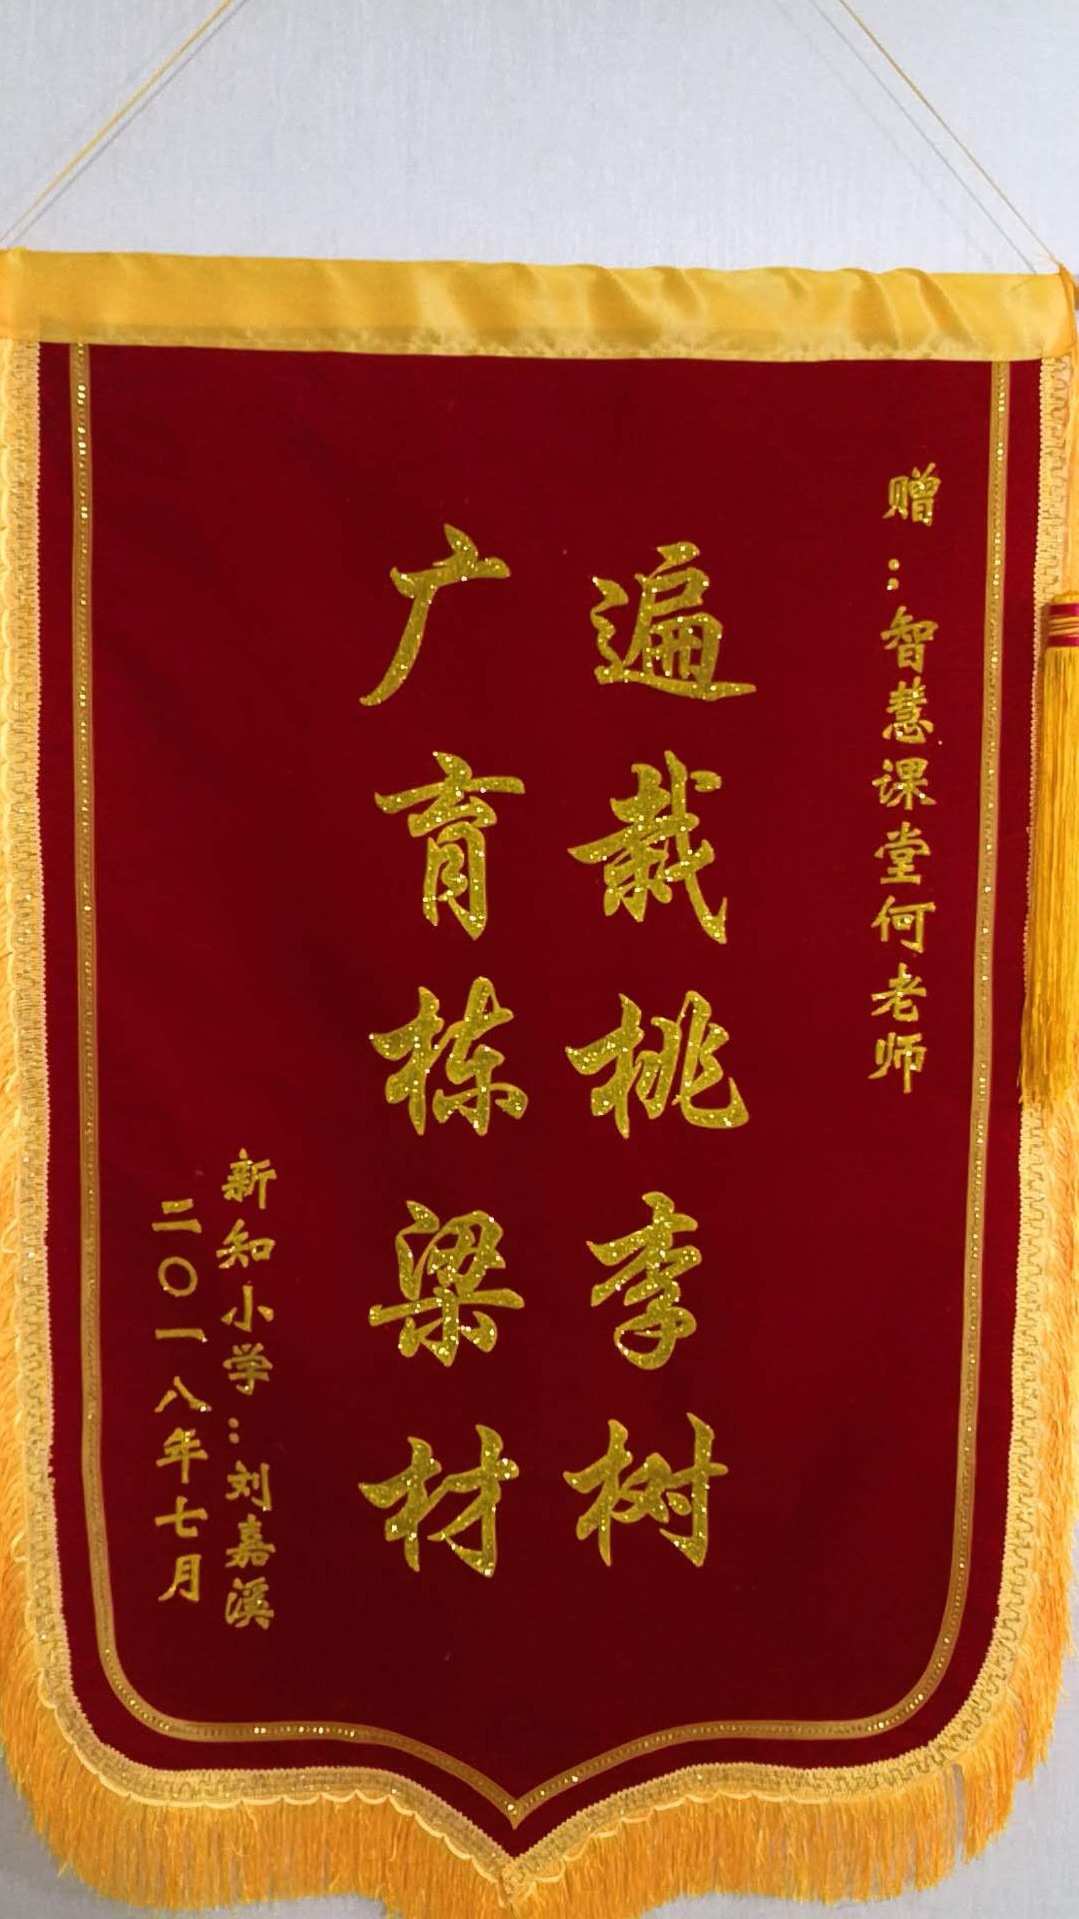 赠：智慧课堂何老师
遍栽桃李树
广育栋梁材
新知小学：刘嘉溪
二〇一八年七月